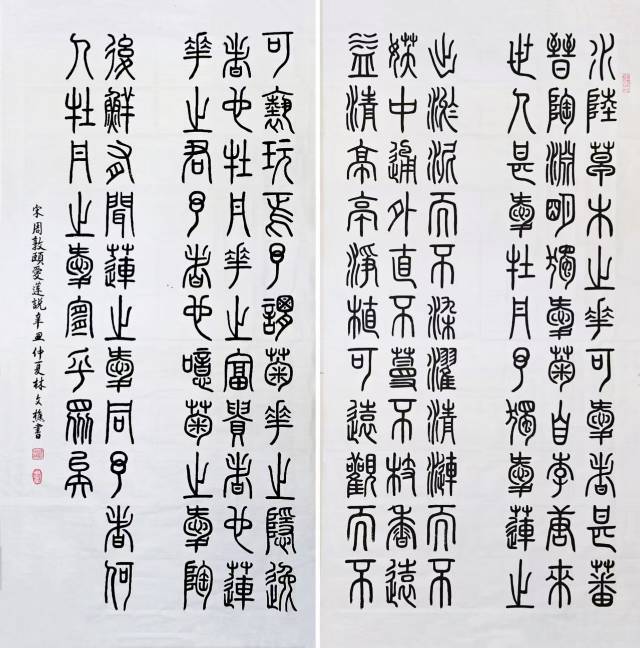 水陸草木之華可愛者甚蕃
晉陶淵明獨愛菊自李唐來
世人甚愛牡丹予獨愛蓮之
出淤泥而不染濯清漣而不
妖中通外直不蔓不枝香遠
益清亭亭淨植可遠觀而不
可褻玩焉予謂菊華之隱逸
者也牡丹華之富貴者也蓮
華之君子者也噫菊之愛陶
後鮮有聞蓮之愛同予者何
人牡丹之愛宜乎眾矣
宋周敦頤愛蓮說辛丑仲夏林文樵書